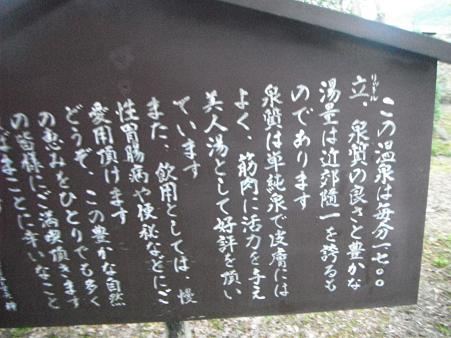 この温泉は毎分一七〇〇
立、泉質の良さと豊かな
リットル
湯量は近郊随一を誇るも
のであります
泉質は単純泉で皮膚には
よく、筋肉に活力を与え
美人湯として好評を頂い
ています
また、飲用としては、慢
性胃腸病や便秘などにご
愛用頂けます
どうぞ、この豊かな自然
の恵みをひとりでも多く
の皆様にご満喫頂きます
ればまことに幸いなこと